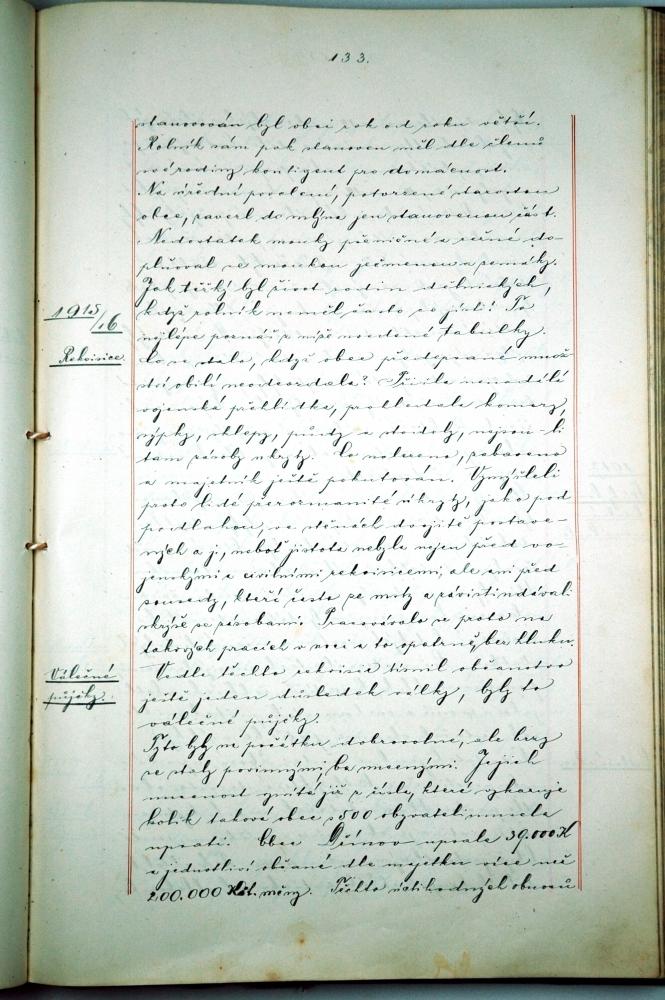 133.
stanovován byl obci rok od roku větší.
Rolník sám pak stanoven měl dle členů
své rodiny kontigent pro domácnost.
Na úřední povolení, potvrzené starostou
obce, zavezl do mlýna jen stanovenou část.
Nedostatek mouky pšeničné a režné do-
plňoval se moukou ječmenou a zemáky.
Jak těžký byl život rodin dělnických,
když rolník neměl často co jísti! To
nejlépe poznáš z níže uvedené tabulky.
1915/16
Rekvisice.
Co se stalo, když obec předepsané množ-
ství obilí neodevzdala? Přišla nenadálá
vojenská přehlídka, prohledala komory,
sýpky, sklepy, půdy a stodoly, nejsou-li
tam zásoby ukryty. Co nalezeno, zabaveno
a majetník ještě pokutován. Vymýšleli
proto lidé přerozmanité úkryty, jako pod
podlahou, ve stěnách dvojitě postave-
ných a j., neboť jistota nebyla nejen před vo-
jenskými a civilními rekvisicemi, ale ani před
sousedy, kteří často ze msty a závisti udávali
skrýše se zásobami. Pracovávalo se proto na
takových pracích v noci a to opatrně, bez hluku.
Válečné
půjčky.
Vedle těchto rekvisic tísnil občanstvo
ještě jeden důsledek války, byly to
válečné půjčky.
Tyto byly na počátku dobrovolné, ale brzy
se staly povinnými, ba nucenými. Jejich
nucenost zníti již z čísla, které vykazuje
kolik taková obec s 500 obyvateli musela
upsati. Obec upsala 39.000 K
a jednotliví občané dle majetku více než
200.000 Kč. měny. Těchto úctihodných obnosů